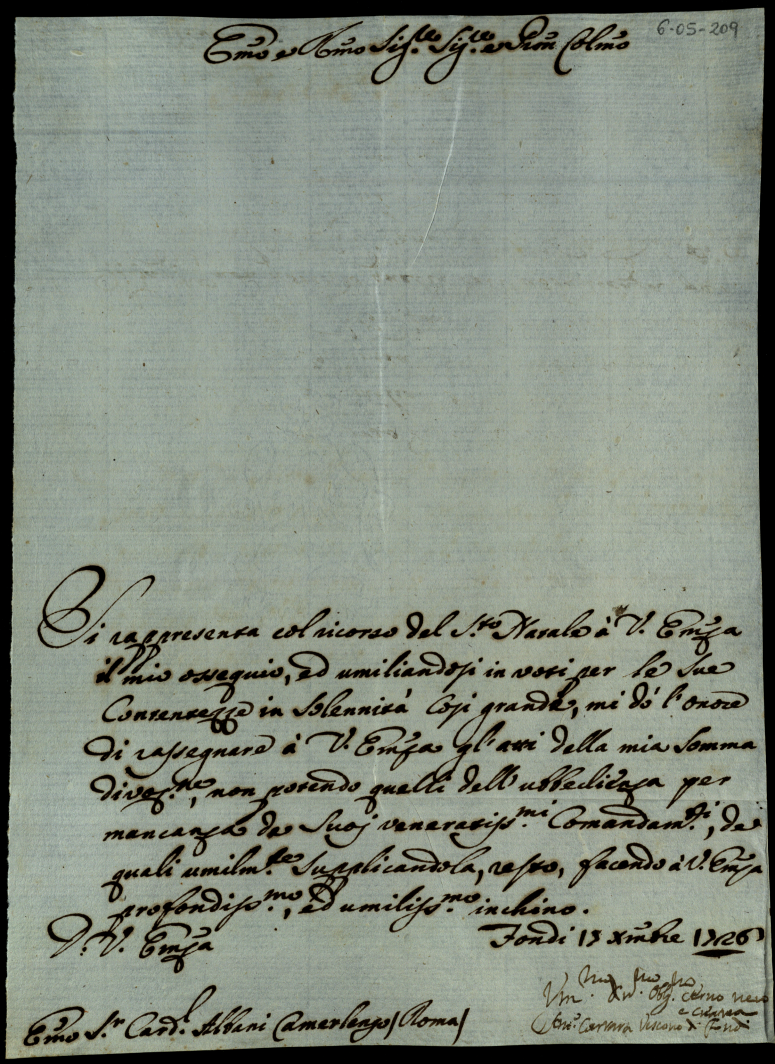 6-05-209
Emo e Rmo Sig.re Sig.re e Pron Colmo
Si rappresenta col ricorso del S.to Natale à V. Emza
il mio ossequio, ed umiliandosi in voti per le Sue
Contentezze in Solennità Cosi grande, mi dò l'onore
di rassegnare à V. Emza gl'atti della mia Somma
divoz.ne, non potendo quelli dell'ubbedieza per
mancanza de Suoj veneratiss.mi Comandam.ti, de
quali umilm.te Supplicandola, resto, facendo à V. Emza
profondiss.mo, ed umiliss.mo inchino.
D. V. Emza
Fondi 13 xmbre 1726
Um. Di. Obg. Servo vero
Vescovo di Fondi
Emo S.r Card.l Albani Camerlengo / Roma /